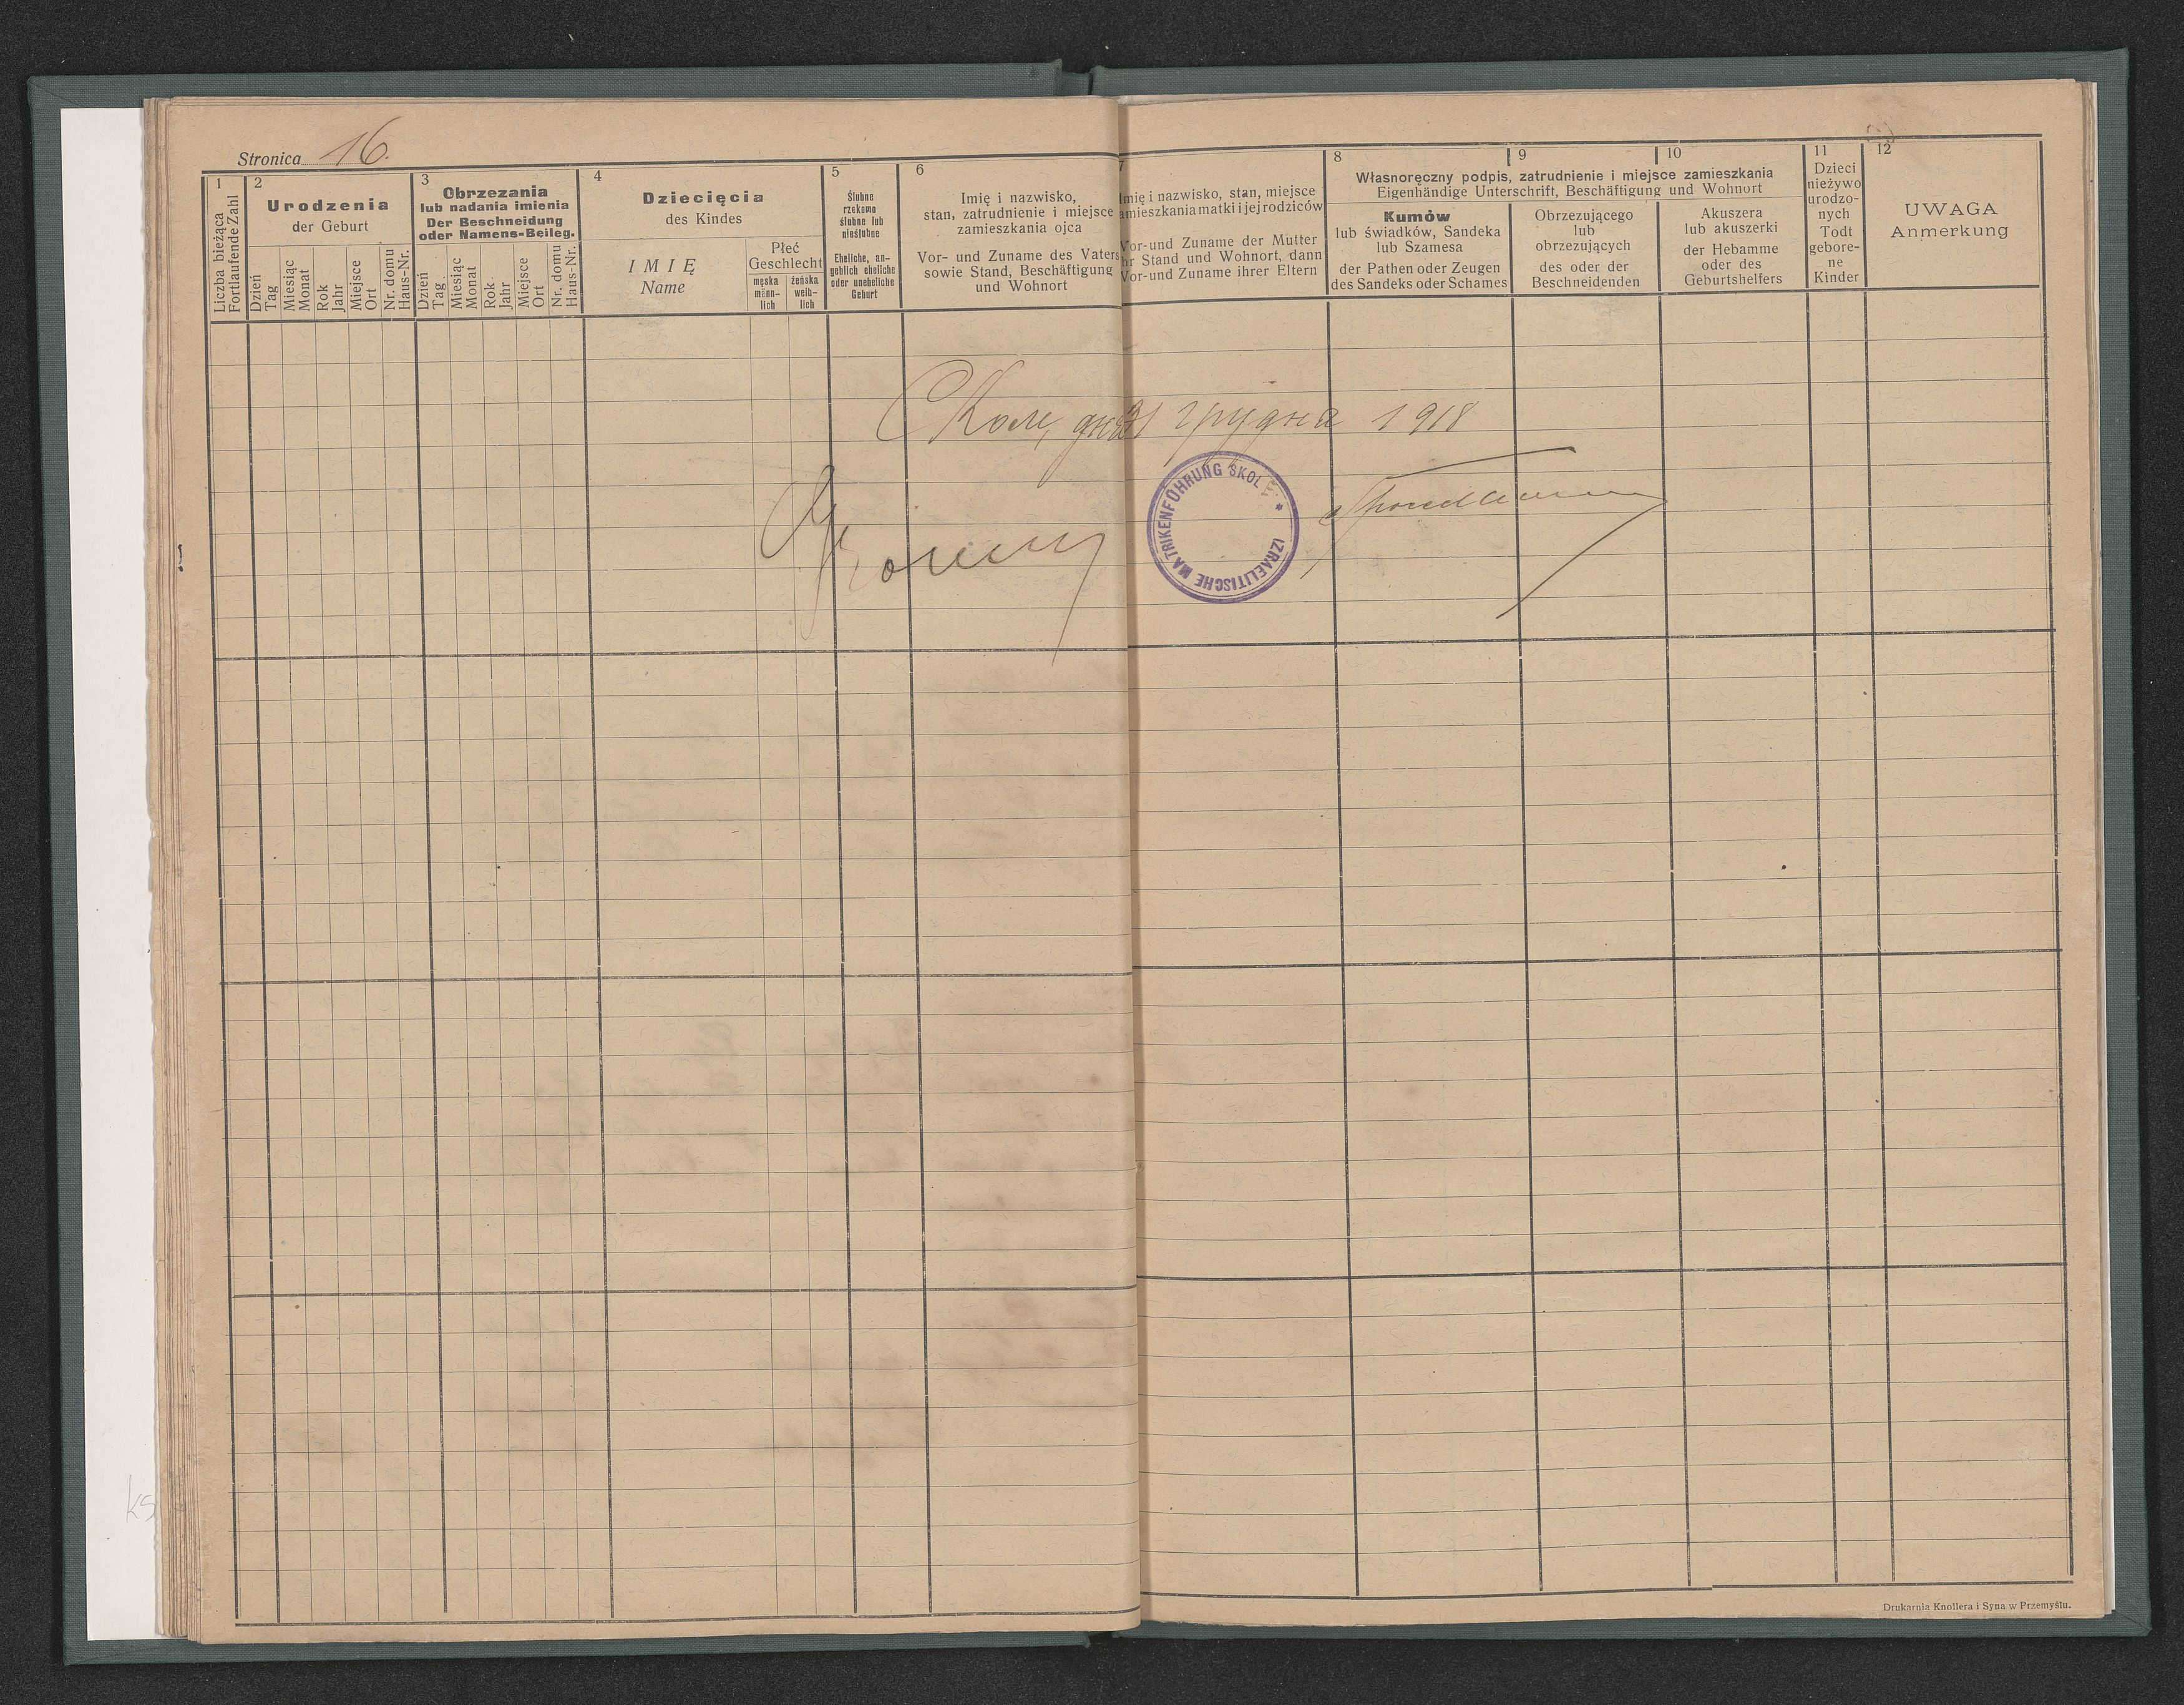 Stronica 16.
1
Liczba bieżąca
Fortlaufende Zahl
2
Urodzenia
der Geburt
Dzień
Tag
Miesiąc
Monat
Rok
Jahr
Miejsce
Ort
Nr. domu
Haus-Nr.
3
Obrzezania
lub nadania imienia
Der Beschneidung
oder Namens-Beileg.
Dzień
Tag
Miesiąc
Monat
Rok
Jahr
Miejsce
Ort
Nr. domu
Haus-Nr.
4
Dziecięcia
des Kindes
IMIĘ
Name
Płeć
Geschlecht
męska
männ-
lich
żeńska
weib-
lich
5
Ślubne
rzekomo
ślubne lub
nieślubne
Eheliche, an-
geblich eheliche
oder uneheliche
Geburt
6
Imię i nazwisko,
stan, zatrudnienie i miejsce
zamieszkania ojca
Vor- und Zuname des Vaters
sowie Stand, Beschäftigung
und Wohnort
7
Imię i nazwisko, stan, miejsce
amieszkania matki i jej rodziców
Vor-und Zuname der Mutter
hr Stand und Wohnort, dann
Vor-und Zuname ihrer Eltern
8
9
10
Własnoręczny podpis, zatrudnienie i miejsce zamieszkania
Eigenhändige Unterschrift, Beschäftigung und Wohnort
Kumów
lub świadków, Sandeka
lub Szamesa
der Pathen oder Zeugen
des Sandeks oder Schames
Obrzezującego
lub
obrzezujących
des oder der
Beschneidenden
Akuszera
lub akuszerki
der Hebamme
oder des
Geburtshelfers
11
Dzieci
nieżywo
urodzo-
nych
Todt
gebore-
ne
Kinder
12
UWAGA
Anmerkung
Сколе, дня 31 грудня 1918
IZRAELITISCHE MATRIKENFÜHRUNG SKOLE *
Drukarnia Knollera i Syna w Przemyślu.